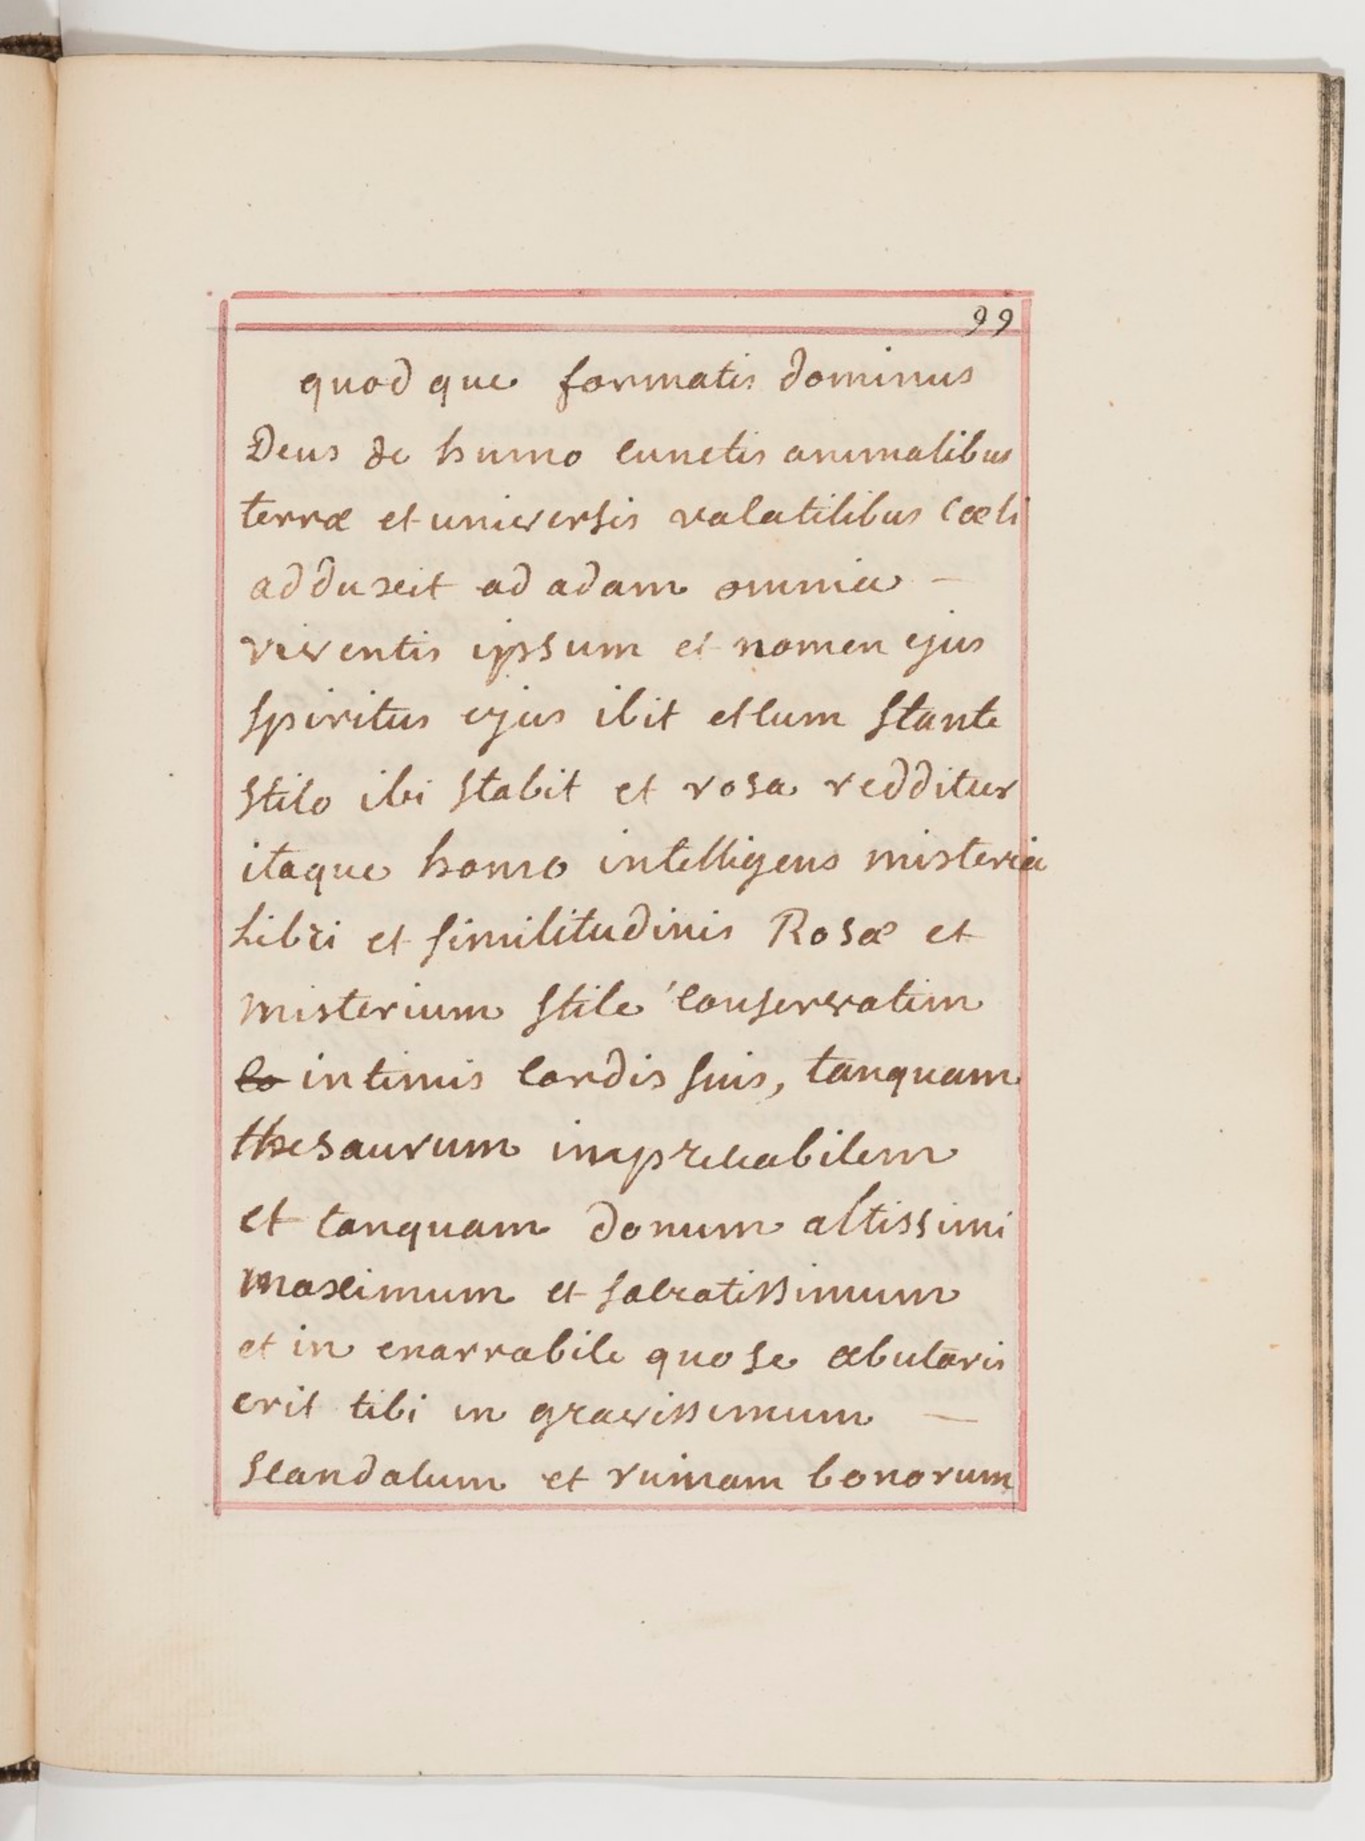 99
quod que formatis dominus
Deus de humo cunctis animalibus
terræ et universis valatilibus Cœli
adduxit ad adam omnia –
viventis ipsum et nomen ejus
spiritus ejus ibit et cum stante
stilo ibi stabit et rosa redditur
itaque homo intelligens misteria
Libri et similitudinis Rosæ et
misterium stile conservatim
co intimis cordis suis, tanquam
thesaurum impreciabilem
et tanquam donum altissimi
maximum et sacratissimum
et in enarrabile quo se abutaris
erit tibi in gravissimum –
scandalum et ruinam bonorum